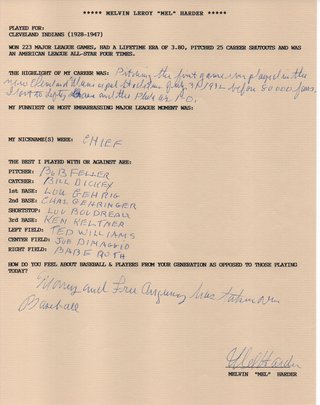 ***** MELVIN LEROY "MEL" HARDER *****
PLAYED FOR:
CLEVELAND INDIANS (1928-1947)
WON 223 MAJOR LEAGUE GAMES, HAD A LIFETIME ERA OF 3.80, PITCHED 25 CAREER SHUTOUTS AND WAS
AN AMERICAN LEAGUE ALL-STAR FOUR TIMES.
THE HIGHLIGHT OF MY CAREER WAS: Pitching the first game ever played in the
new Cleveland Municipal Stadium July 31, 1932 before 80000 fans.
I lost to Lefty Grove and the Phila A's 1-0.
MY FUNNIEST OR MOST EMBARRASSING MAJOR LEAGUE MOMENT WAS:
MY NICKNAME(S) WERE: CHIEF
THE BEST I PLAYED WITH OR AGAINST ARE:
PITCHER: BOB FELLER
CATCHER: BILL DICKEY
1st BASE: LOU GEHRIG
2nd BASE: CHAS GEHRINGER
SHORTSTOP: LOU BOUDREAU
3rd BASE: KEN KELTNER
LEFT FIELD: TED WILLIAMS
CENTER FIELD: JOE DIMAGGIO
RIGHT FIELD: BABE RUTH
HOW DO YOU FEEL ABOUT BASEBALL & PLAYERS FROM YOUR GENERATION AS OPPOSED TO THOSE PLAYING
TODAY?
Money and Free Agency has taken over
Baseball
Mel Harder
MELVIN "MEL" HARDER